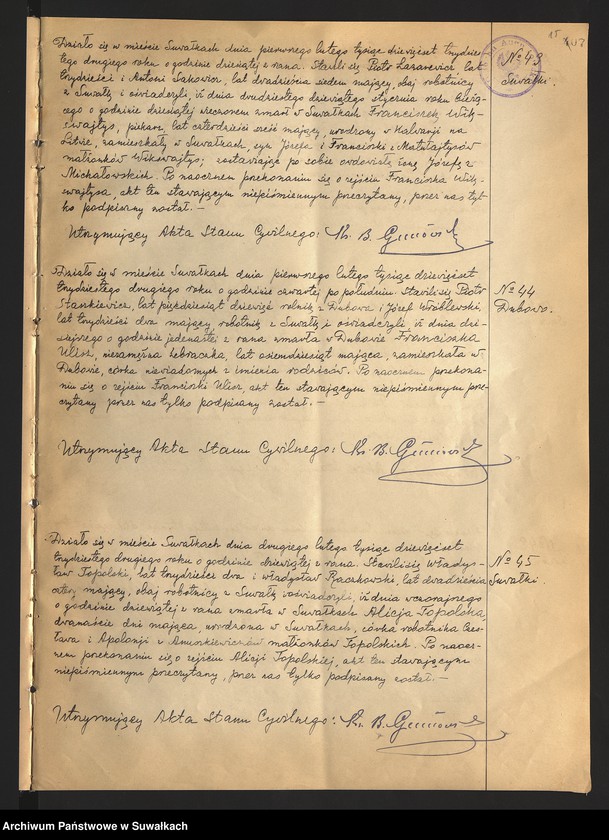 Działo się w mieście Suwałkach dnia pierwszego lutego tysiąc dziewięćset trzydzies-
tego drugiego roku o godzinie dziesiątej z rana. Stawili się Piotr Łazarewicz lat
trzydzieści i Antoni Sakowicz, lat dwadzieścia siedem mający, obaj robotnicy
z Suwałk i oświadczyli, iż dnia dwudziestego dziewiątego stycznia roku bieżą-
cego o godzinie dziesiątej wieczorem zmarł w Suwałkach Franciszek Wilk-
szwajtys, piekarz, lat czterdzieści sześć mający, urodzony w Kalwarji na
Litwie, zamieszkały w Suwałkach, syn Józefa i Franciszki z Matulajtysów
małżonków Wilkszwajtys; zostawiając po sobie owdowiałą żonę Józefę z
Michałowskich. Po naocznem przekonaniu się o zejściu Franciszka Wilk-
szwajtysa, akt ten stawającym niepiśmiennym przeczytany, przez nas tyl-
ko podpisany został. —
Utrzymujący Akta Stanu Cywilnego: Ks. B.
№ 43
Suwałki.
Działo się w mieście Suwałkach dnia pierwszego lutego tysiąc dziewięćset
trzydziestego drugiego roku o godzinie czwartej po południu. Stawili się Piotr
Stankiewicz, lat pięćdziesiąt dziewięć rolnik z Dubowa i Józef Wróblewski,
lat trzydzieści dwa mający, robotnik z Suwałk i oświadczyli, iż dnia dzi-
siejszego o godzinie jedenastej z rana zmarła w Dubowie Franciszka
Ulicz, niezamężna żebraczka, lat osiemdziesiąt mająca, zamieszkała w
Dubowie, córka niewiadomych z imienia rodziców. Po naocznem przekona-
niu się o zejściu Franciszki Ulicz, akt ten stawającym niepiśmiennym prze-
czytany przez nas tylko podpisany został. —
Utrzymujący Akta Stanu Cywilnego: Ks. B.
№ 44
Dubowo.
Działo się w mieście Suwałkach dnia drugiego lutego tysiąc dziewięćset
trzydziestego drugiego roku o godzinie dziewiątej z rana. Stawili się Władys-
ław Topolski, lat trzydzieści dwa i Władysław Raczkowski, lat dwadzieścia
cztery mający, obaj robotnicy z Suwałk i oświadczyli, iż dnia wczorajszego
o godzinie dziewiątej z rana zmarła w Suwałkach Alicja Topolska,
dwanaście dni mająca, urodzona w Suwałkach, córka robotnika Czes-
ława i Apolonji z małżonków Topolskich. Po naocz-
nem przekonaniu się o zejściu Alicji Topolskiej, akt ten stawającym
niepiśmiennym przeczytany, przez nas tylko podpisany został. —
Utrzymujący Akta Stanu Cywilnego: Ks. B.
№ 45
Suwałki.
Archiwum Państwowe w Suwałkach